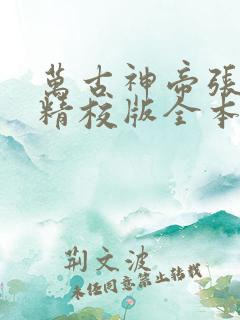 萬古神帝張
精校版全本
荆文波
未经同意禁止转载